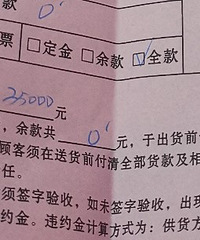 款 0
票 □定金 □余款 ☑全款
35000元
,余款共 0 元,于出货前
顾客须在送货前付清全部货款及相
任。
须签字验收,如未签字验收,出现
约金。违约金计算方式为:供货方